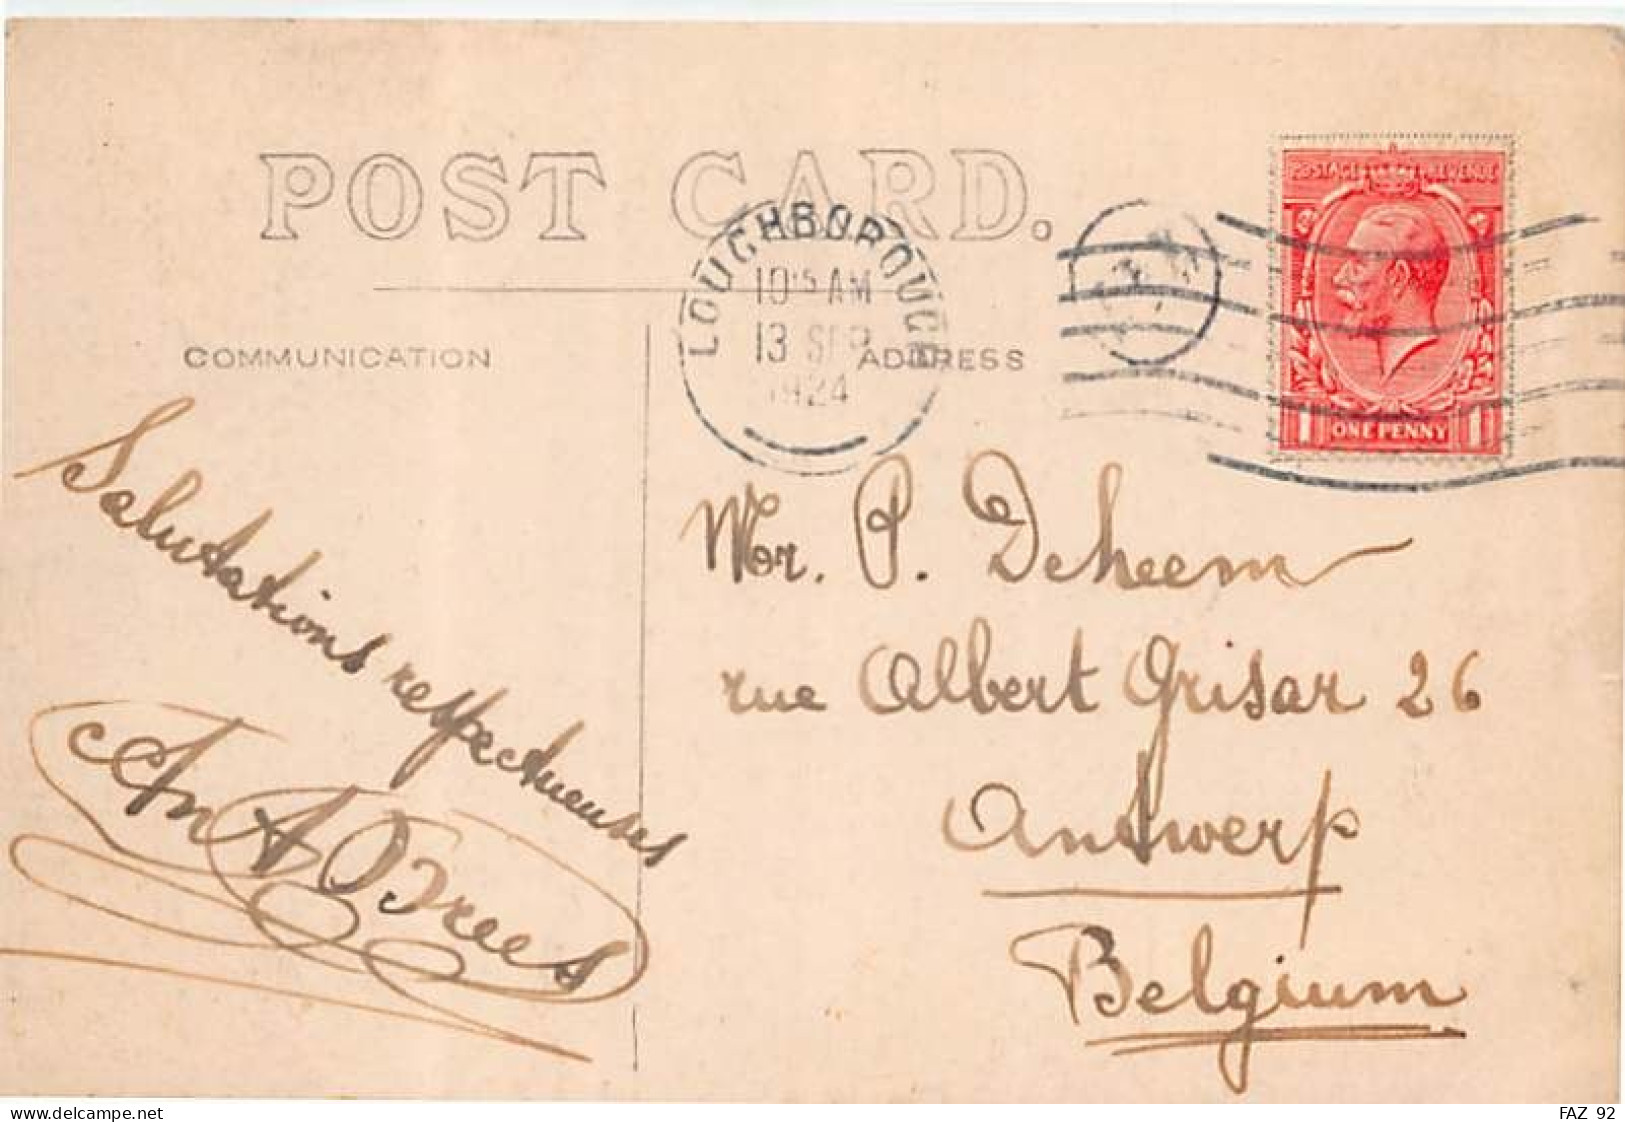 POST CARD.
LOUGHBOROUGH
10 15 AM
13 SEP
1924
POSTAGE REVENUE
1 ONE PENNY 1
COMMUNICATION
ADDRESS
Salutations respectueuses
Mor. P. Deheem
rue Albert Grisar 26
Antwerp
Belgium
delcampe.net
FAZ 92